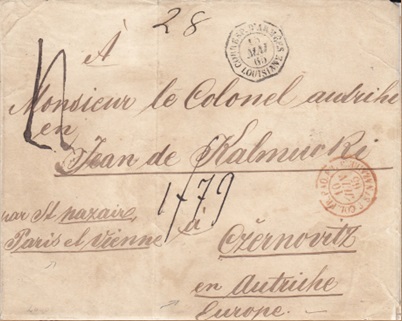 28
À
Monsieur le Colonel autrihe
en
Jean de Kalmucki
1479
par St nazaire
Paris et Vienne
à
Czernovitz
en Autriche
Europe.
MAI
LOUISIANE